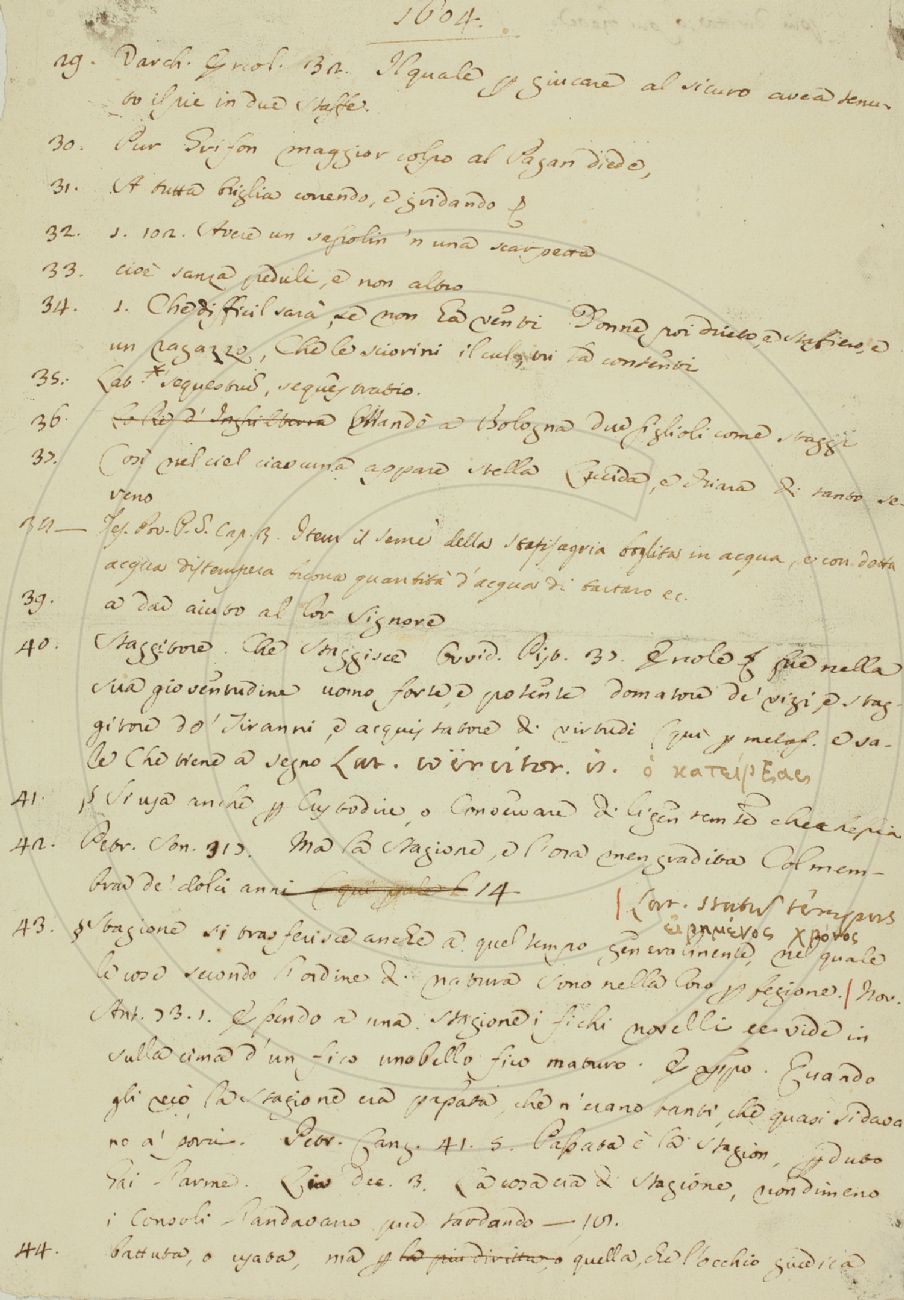 1604.
29. Varch. Ercol. 132. Il quale p giucare al sicuro avea tenu-
to il piè in due staffe.
30. Pur Grifon maggior colpo al Pagan diede,
31. A tutta briglia correndo, e gridando
32. 1. 102. Avere un sassolin 'n una scarpetta
33. cioè sanza peduli, e non altro
34. 1. Che difficil sarà, se non ha venti Donne poi dietro, e staffieri, e
un ragazzo, Che le sciorini il cul, tu ta contenti
35. Lat. * sequestrũ, sequestratio.
36. Lo Re d' Inghilterra Mandò a Bologna due figlioli come staggi
37. Così nel ciel ciascuna appare stella Lucida, e chiara di tanto se-
reno
38— Tes. Pov. P. S. Cap. 3. Item il seme della stafisagria boglita in acqua, e con detta
acqua distempera bona quantità d'acqua di tartaro ec.
39. a dar aiuto al lor signore
40. Staggitore. Che staggisce Ovvid. Pist. 37. Ercole fue nella
sua gioventudine uomo forte, e potente domatore de' vizi, e stag-
gitore de' Tiranni, e acquistatore di virtudi (qui p metaf. e va-
le Che tiene a segno Lat.
41. § Si usa anche p Custodire, o Conservare diligentemente che
42. Petr. Son. 313. Ma la stagione, e l'ora men gradita Col mem-
brar de' dolci anni 14
| Lat. status tempus
εἰρημένος χρόνος
43. § Stagione si trasferisce anche a quel tempo generalmente, nel quale
le cose secondo l'ordine di natura sono nella loro pfezione. | Nov.
Ant. 73. 1. Essendo a una stagione i fichi novelli ec vide in
sulla cima d'un fico uno bello fico maturo. E appo. Quando
gli recò, la stagione era passata, che n' erano tanti, che quasi si dava
no a' porci. Petr. Canz. 41. 5. Passata è la stagion, pduto
hai l'arme. Liv. Dec. 3. La cosa era di stagione, nondimeno
i Consoli l'andavano pur tardando — 15.
44. battuta, o usata, ma p la più diritta, o quella, che l'occhio giudica